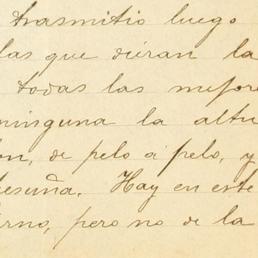 trasmitio luego
las que dieran la
todas las mejor
ninguna la altu
de pelo a pelo, y
Hay en este
pero no de la